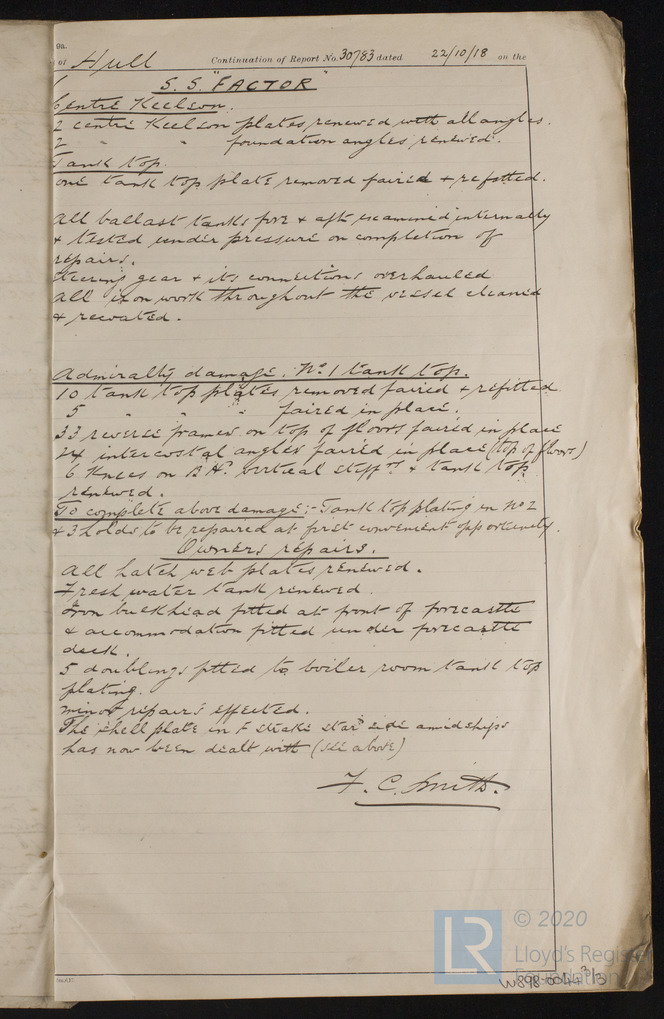 9a.
of Hull Continuation of Report No. 30783 dated 22/10/18 on the
S.S. "FACTOR"
Centre Keelson.
2 centre Keelson plates renewed with all angles.
2 " " foundation angles renewed.
Tank top.
one tank top plate removed faired & refitted.
All ballast tanks fore & aft examined internally
& tested under pressure on completion of
repairs.
Steering gear & its connections overhauled
All iron work throughout the vessel cleaned
& recoated.
Admiralty damage. No. 1 tank top.
10 tank top plates removed faired & refitted
5 " " " faired in place.
33 reverse frames on top of floors faired in place
24 intercostal angles faired in place (top of floors)
6 Knees on B.Hd. vertical stiffrs & tank top
renewed.
To complete above damage:- Tank top plating in No 2
& 3 holds to be repaired at first convenient opportunity.
Owners repairs.
All hatch web plates renewed.
Fresh water tank renewed.
Iron buckhead fitted at front of forecastle
& accommodation fitted under forecastle
deck.
5 doublings fitted to boiler room tank top
plating.
minor repairs effected.
The shell plate in F strake starbd side amidships
has now been dealt with (see above)
F. C. Smith.
LR © 2020
Lloyd's Register
Foundation
W898-0044 3/3